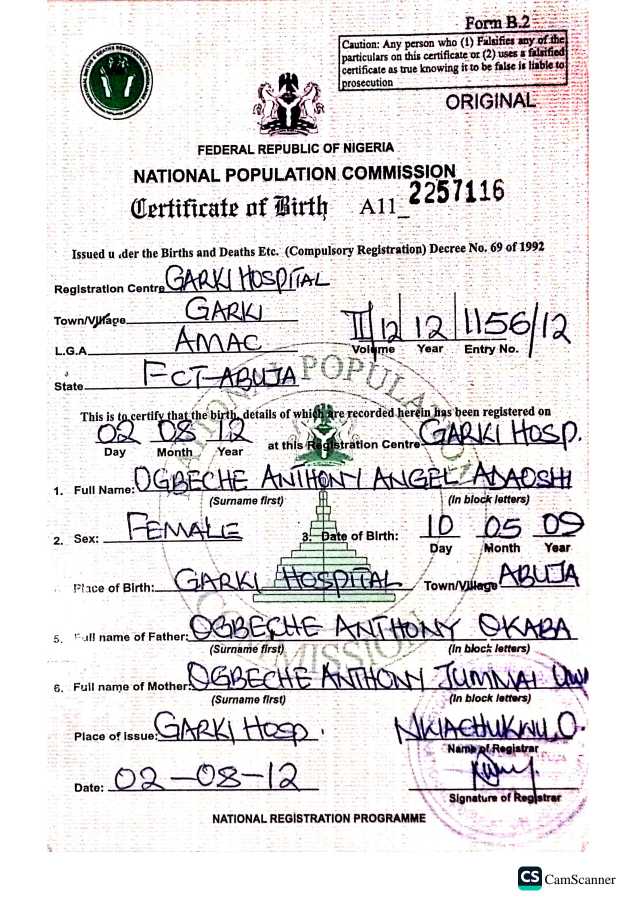 Form B.2
Caution: Any person who (1) Falsifies any of the
particulars on this certificate or (2) uses a falsified
certificate as true knowing it to be false is liable to
prosecution
ORIGINAL
FEDERAL REPUBLIC OF NIGERIA
NATIONAL POPULATION COMMISSION
Certificate of Birth A11_ 2257116
Issued under the Births and Deaths Etc. (Compulsory Registration) Decree No. 69 of 1992
Registration Centre GARKI HOSPITAL
Town/Village GARKI
L.G.A AMAC
II/12 12 1156/12
Volume Year Entry No.
State FCT-ABUJA
This is to certify that the birth, details of which are recorded herein has been registered on
02 08 12 at this Registration Centre GARKI HOSP.
Day Month Year
1. Full Name: OGBECHE ANTHONY ANGEL ADAOSHI
(Surname first) (In block letters)
2. Sex: FEMALE 3. Date of Birth: 10 05 09
Day Month Year
Place of Birth: GARKI HOSPITAL Town/Village ABUJA
5. Full name of Father: OGBECHE ANTHONY OKABA
(Surname first) (In block letters)
6. Full name of Mother: OGBECHE ANTHONY JUMMAI
(Surname first) (In block letters)
Place of Issue: GARKI HOSP. NKIACHUKWU, O.
Name of Registrar
Date: 02-08-12
Signature of Registrar
NATIONAL REGISTRATION PROGRAMME
NATIONAL POPULATION COMMISSION
CS CamScanner